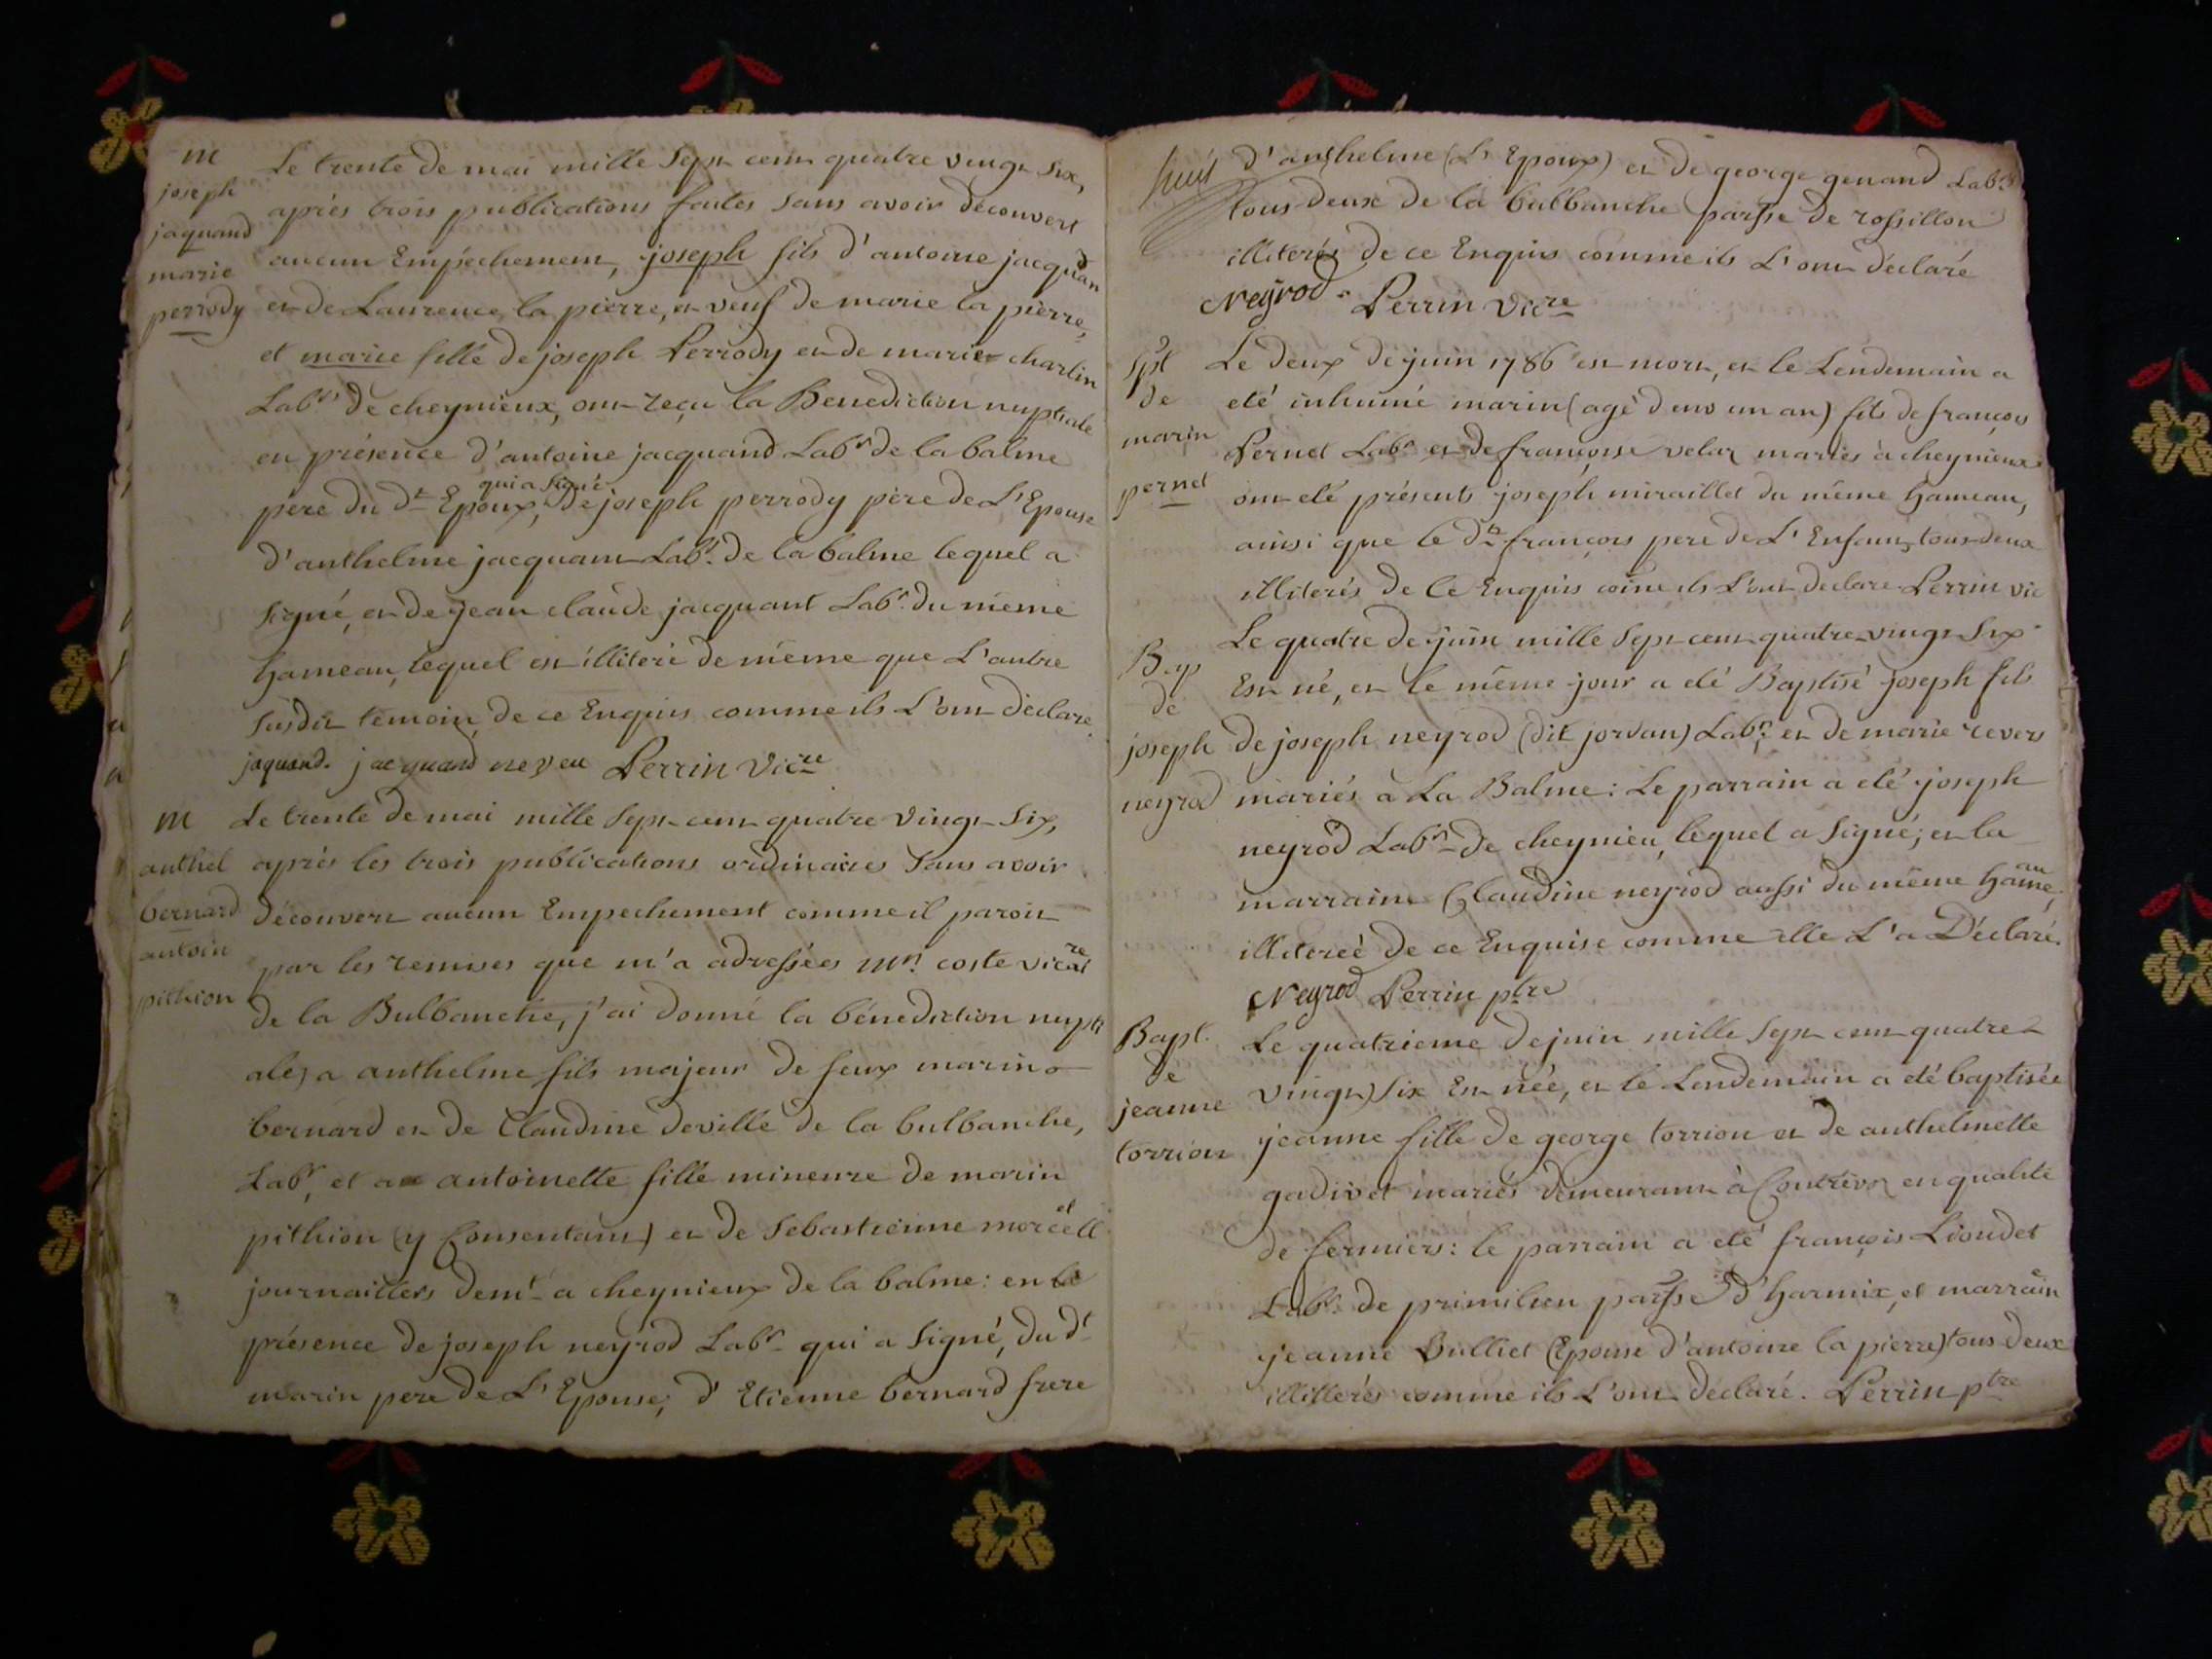 m
joseph
jaquand
marie
perrody
Le trente de mai mille sept cent quatre vingt six,
après trois publications faites sans avoir découvert
aucun Empéchement, joseph fils d'antoine jacquand
et de Laurence la pierre, et veuf de marie la pierre,
et marie fille de joseph Perrody et de marie charlin
Labrs de cheynieux, ont reçu la Benediction nuptiale
en présence d'antoine jacquand Labr de la balme
qui a signé
père du dt Epoux, de joseph perrody père de L'Epouse
d'anthelme jacquant Labr. de la balme lequel a
signé, et de jean claude jacquant Labr. du même
hameau, lequel est illiteré de même que L'autre
susdit temoin, de ce Enquis comme ils L'ont declaré.
jaquand. jacquand neveu Perrin Vicre
m
anthel
bernard
antoin
pithion
Le trente de mai mille sept cent quatre vingt six,
après les trois publications ordinaires sans avoir
découvert aucun Empechement comme il paroit
par les remises que m'a adressées mr. coste vicaire
de la Bulbanche, j'ai donné la bénediction nupti
ale, a anthelme fils majeur de feux marin
bernard et de Claudine deville de la bulbanche,
Labr, et a antoinette fille mineure de marin
pithion (y Consentant) et de Sebastienne morcell et
journaillers demt a cheynieux de la balme: en la
présence de joseph neyrod Labr qui a signé, du dt
marin pere de L'Epouse, d'Etienne bernard frere
suit d'anthelme (L'Epoux) et de george genand Labrs
tous deux de la bulbanche parsse de rossillon
illiterés de ce Enquis comme ils L'ont déclaré
Neyrod. Perrin Vicre
Spt
de
marin
pernet
Le deux de juin 1786 est mort, et le Lendemain a
eté inhumé marin (agé d'env un an) fils de françois
Pernet Labr et de françoise velar mariés à cheynieux
ont eté présents joseph miraillet du même hameau,
ainsi que le dt françois pere de L'Enfant, tous deux
illiterés de ce Enquis come ils L'ont declaré Perrin vic
Bap
de
joseph
neyrod
Le quatre de juin mille sept cent quatre-vingt six
Est né, et le même jour a eté Baptisé joseph fils
de joseph neyrod (dit jordan) Labr. et de marie revers
mariés à La Balme: Le parrain a eté joseph
neyrod Labr de cheynieu, lequel a signé; et la
marraine Claudine neyrod aussi du même hameau,
illitereé de ce Enquise comme elle L'a Déclaré.
Neyrod Perrin ptre
Bapt.
de
jeanne
torrion
Le quatrieme de juin mille sept cent quatre
vingt six Est née, et le Lendemain a eté baptisée
jeanne fille de george torrion et de anthelmette
gadivet mariés demeurant à Contrevoz en qualité
de fermiers: le parrain a eté françois Lioudet
Labr. de primilien parsse d'harmix, et marrain
jeanne Bulliet (Epouse d'antoine la pierre) tous deux
illitterés comme ils L'ont déclaré. Perrin ptre